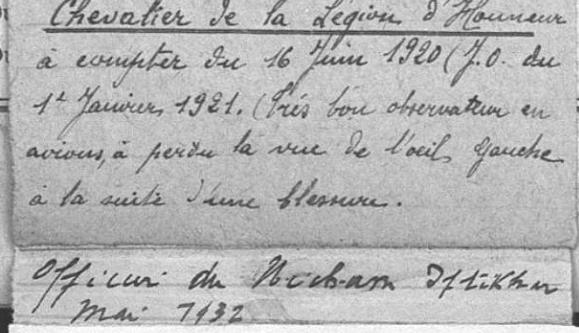 Chevalier de la Légion d'Honneur
à compter du 16 Juin 1920 (J.O. du
1er Janvier 1921. (Très bon observateur en
avions, à perdu la vue de l'oeil gauche
à la suite d'une blessure.
Officier du Nicham Iftikhar
Mai 1932